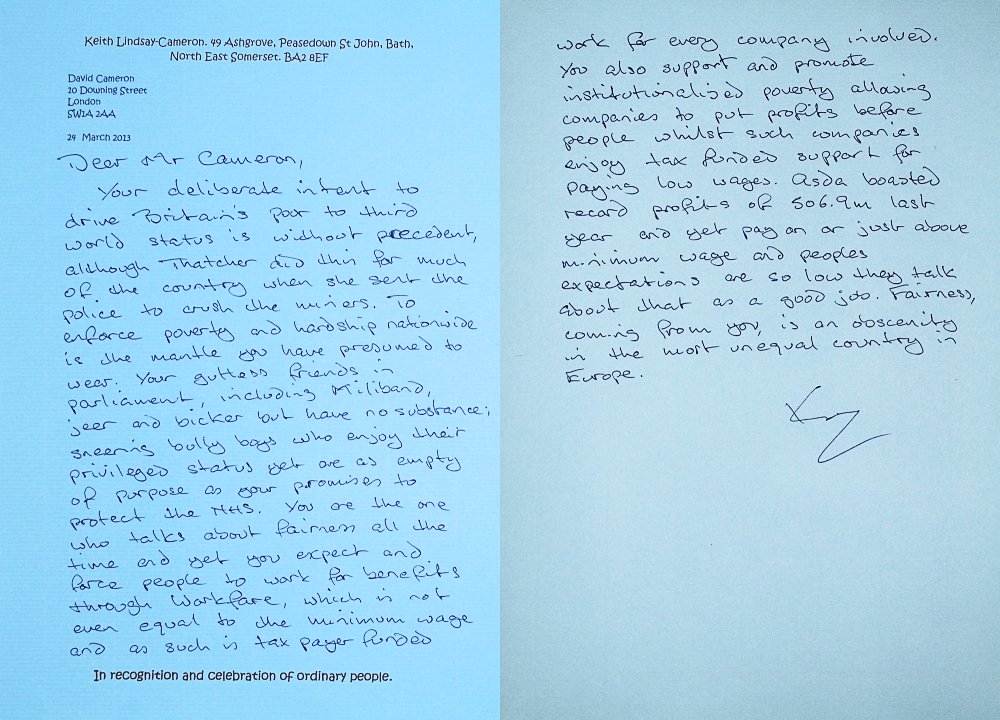 Keith Lindsay-Cameron. 49 Ashgrove, Peasedown St John, Bath,
North East Somerset. BA2 8EF
David Cameron
10 Downing Street
London
SW1A 2AA
24 March 2013
Dear Mr Cameron,
Your deliberate intent to
drive Britain's poor to third
world status is without precedent,
although Thatcher did this for much
of the country when she sent the
police to crush the miners. To
enforce poverty and hardship nationwide
is the mantle you have presumed to
wear. Your gutless friends in
parliament, including Miliband,
jeer and bicker but have no substance;
sneering bully boys who enjoy their
privileged status yet are as empty
of purpose as your promises to
protect the NHS. You are the one
who talks about fairness all the
time and yet you expect and
force people to work for benefits
through Workfare, which is not
even equal to the minimum wage
and as such is tax payer funded
In recognition and celebration of ordinary people.
work for every company involved.
You also support and promote
institutionalised poverty allowing
companies to put profits before
people whilst such companies
enjoy tax funded support for
paying low wages. Asda boasted
record profits of 506.9m last
year and yet pay on or just above
minimum wage and peoples
expectations are so low they talk
about that as a good job. Fairness,
coming from you, is an obscenity
in the most unequal country in
Europe.